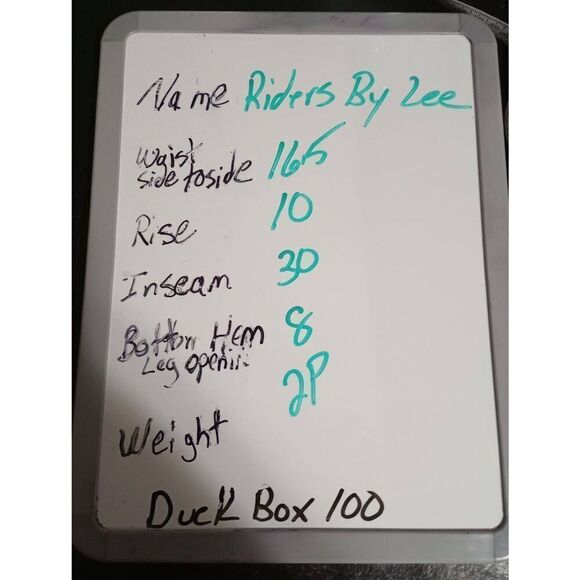 Name Riders By Lee
Waist 16.5
side to side
Rise 10
Inseam 30
Bottom Hem 8
Leg openin
Weight 2P
Duck Box 100